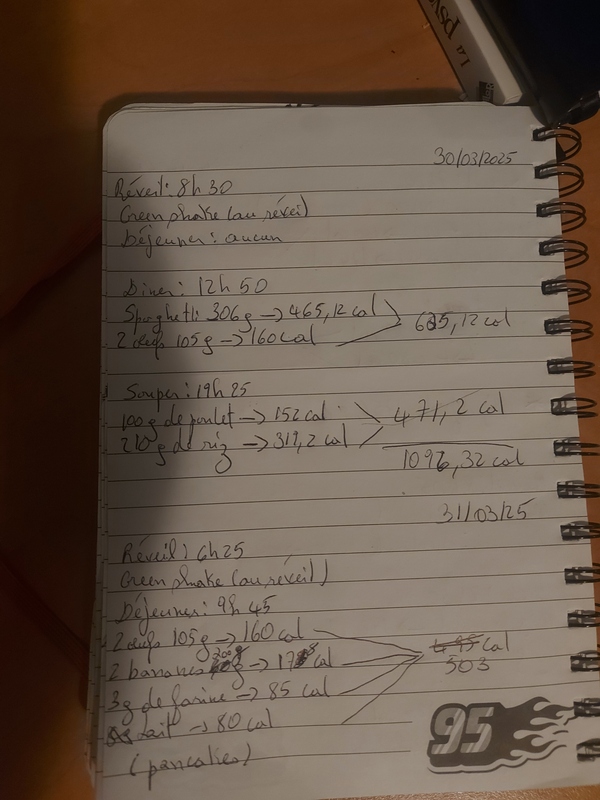 La psy
30/03/2025
Réveil: 8h30
Green shake (au réveil)
Déjeuner: aucun
Diner: 12h50
Spaghetti 306g → 465,12 cal
2 œufs 105g → 160 cal
625,12 cal
Souper: 19h25
100g de poulet → 152 cal
210g de riz → 319,2 cal
471,2 cal
1096,32 cal
31/03/25
Réveil: 6h25
Green shake (au réveil)
Déjeuner: 9h45
2 œufs 105g → 160 cal
2 bananes 200g → 178 cal
3g de farine → 85 cal
lait → 80 cal
(pancakes)
495 cal
503
95